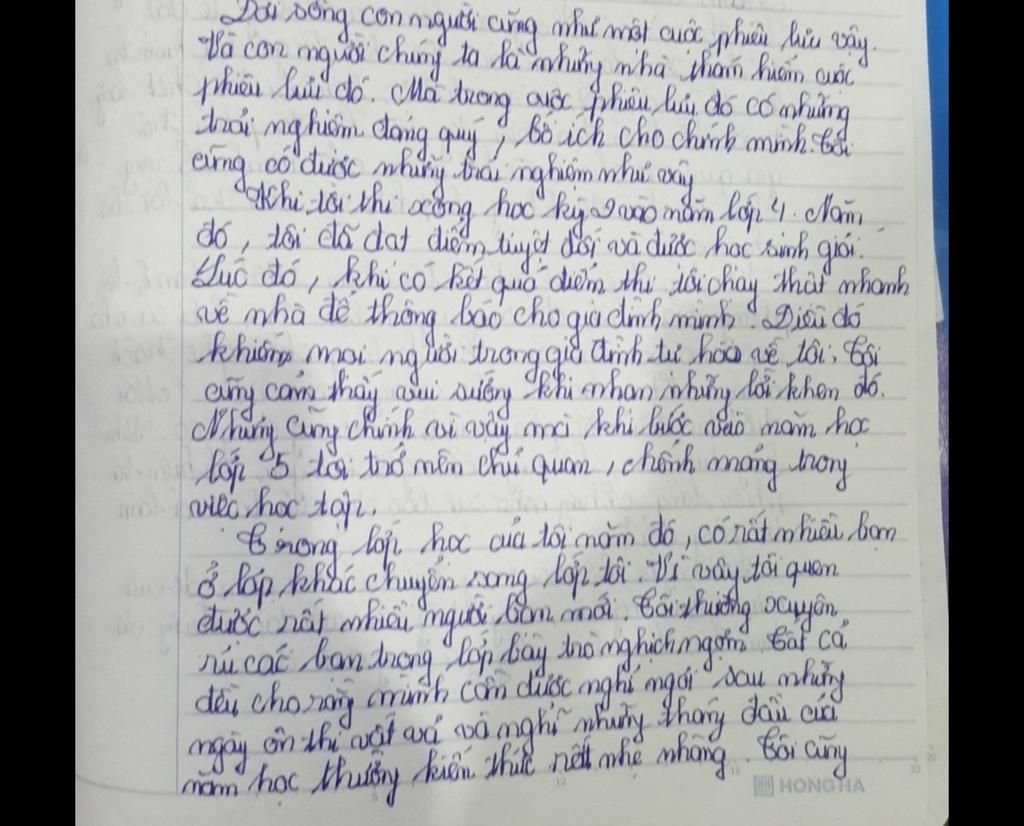 Đời sống con người cũng như một cuộc phiêu lưu vậy.
Và con người chúng ta là những nhà thám hiểm cuộc
phiêu lưu đó. Mà trong cuộc phiêu lưu đó có những
trải nghiệm đáng quý, bổ ích cho chính mình. Tôi
cũng có được những trải nghiệm như vậy
Khi tôi thi xong học kỳ 2 vào năm lớp 4. Năm
đó, tôi đã đạt điểm tuyệt đối và được học sinh giỏi.
Lúc đó, khi có kết quả điểm thi tôi chạy thật nhanh
về nhà để thông báo cho gia đình mình. Điều đó
khiến mọi người trong gia đình tự hào về tôi. Tôi
cũng cảm thấy vui sướng khi nhận những lời khen đó.
Nhưng cũng chính vì vậy mà khi bước vào năm học
lớp 5 tôi trở nên chủ quan, chểnh mảng trong
việc học tập.
Trong lớp học của tôi năm đó, có rất nhiều bạn
ở lớp khác chuyển sang lớp tôi. Vì vậy tôi quen
được rất nhiều người bạn mới. Tôi thường xuyên
rủ các bạn trong lớp bày trò nghịch ngợm. Tất cả
đều cho rằng mình cần được nghỉ ngơi sau những
ngày ôn thi vất vả và nghĩ những tháng đầu của
năm học thường kiến thức rất nhẹ nhàng. Tôi cũng
HONG HA